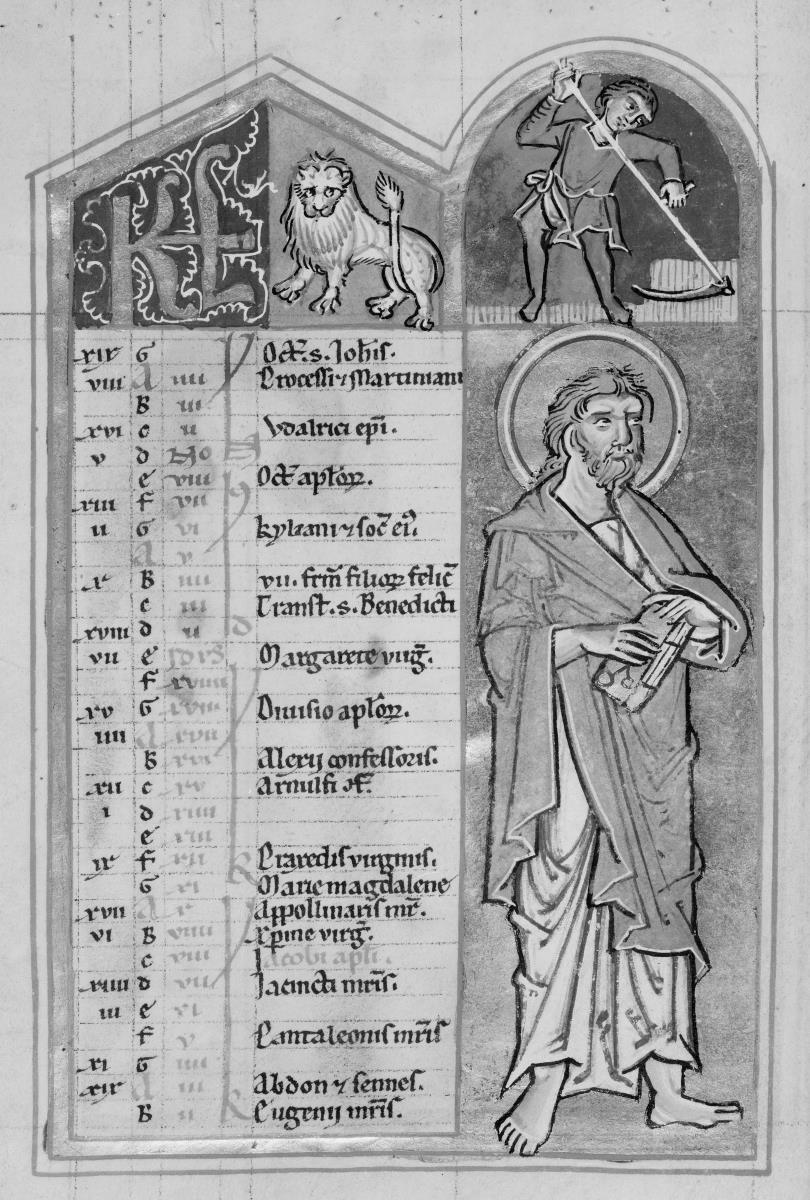 KL
xix G Oct. s. Joh̄is.
viii A iiii Processi ⁊ Martiniani
B iii
xvi c ii Vdalrici ep̄i.
v d No
e viii Oct̄ ap̄l'oꝝ.
xiii f vii
ii G vi kyliani ⁊ soc̄ ei⁹.
A v
x B iiii vii. frm̄ filioꝝ felic̄
c iii Transl̄. s. Benedicti
xviii d ii
vii e Idus Margarete virg̅.
f xvii
xv G xviii Diuisio apl'oꝝ.
iiii A xvii
B xvi Alexij confessoris.
xii c xv Arnulfi
i d xiiii
e xiii
ix f xii Praxedis virginis.
G xi Marie magdalene
xvii A x Appollinaris mr̄.
vi B viiii Xp̄ine virg̅.
c viii Jacobi apl̄i.
xiiii d vii Jacincti mr̄is.
iii e vi
f v Pantaleonis mr̄is
xi G iiii
xix A iii Abdon ⁊ sennes.
B ii Eugenij mr̄is.